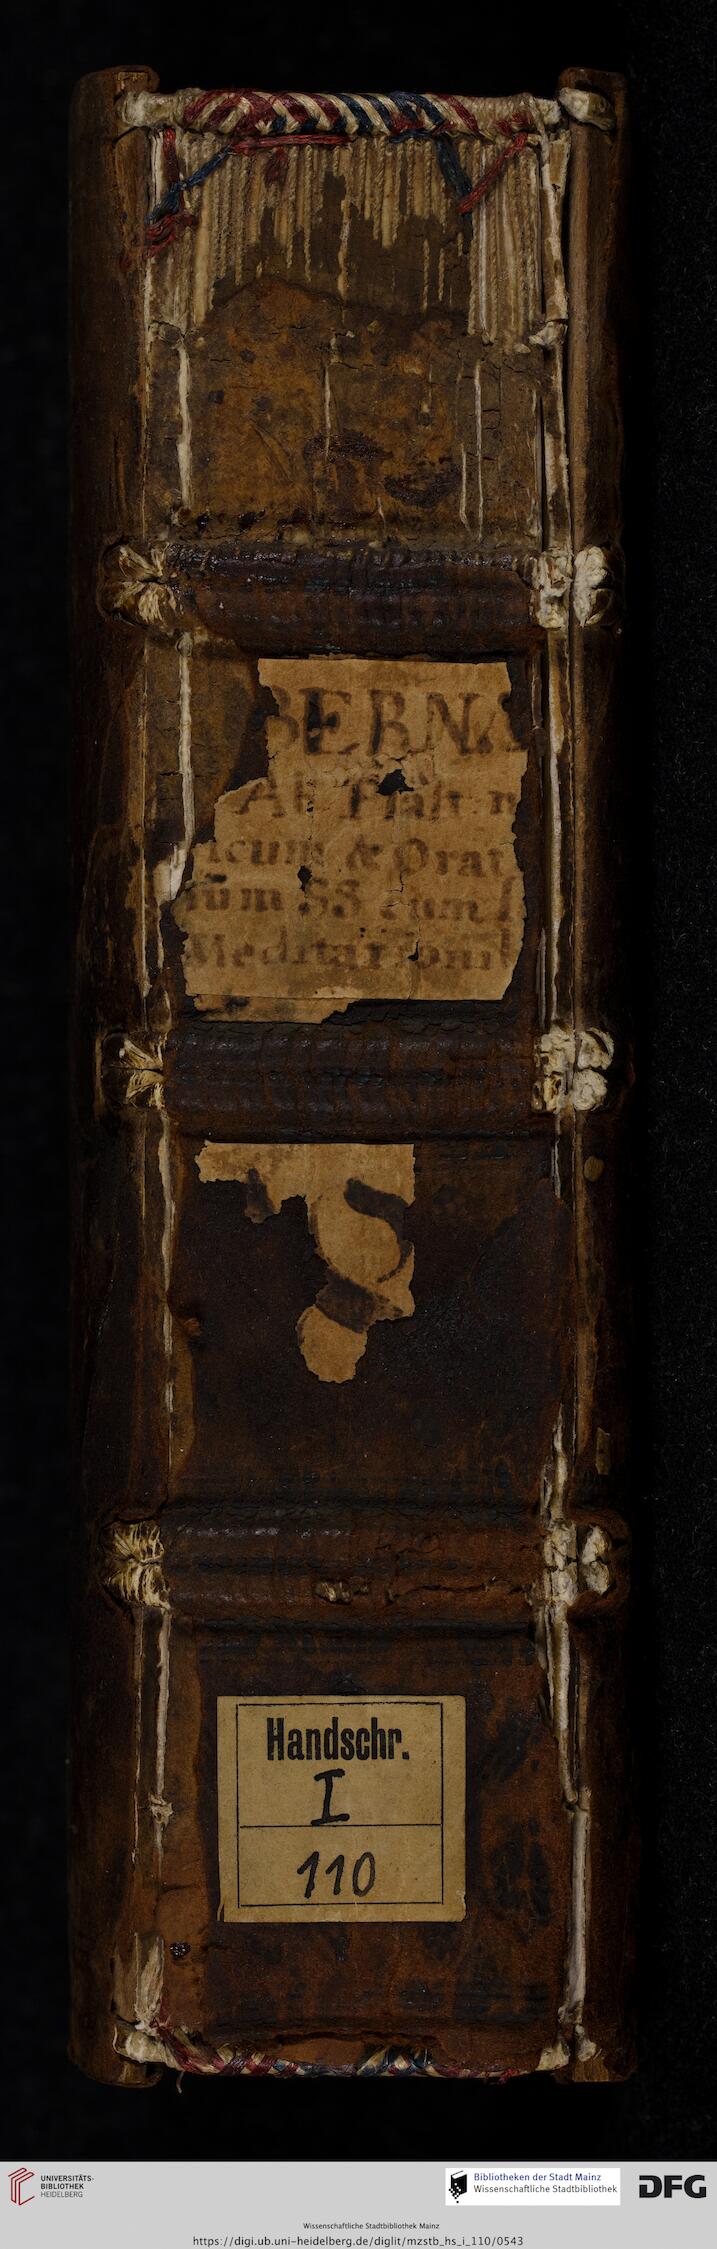 BERNA
Ab
icum & Orat
um SS cum
Meditationi
Handschr.
I
110
UNIVERSITÄTS-
BIBLIOTHEK
HEIDELBERG
Bibliotheken der Stadt Mainz
Wissenschaftliche Stadtbibliothek
DFG
Wissenschaftliche Stadtbibliothek Mainz
https://digi.ub.uni-heidelberg.de/diglit/mzstb_hs_i_110/0543